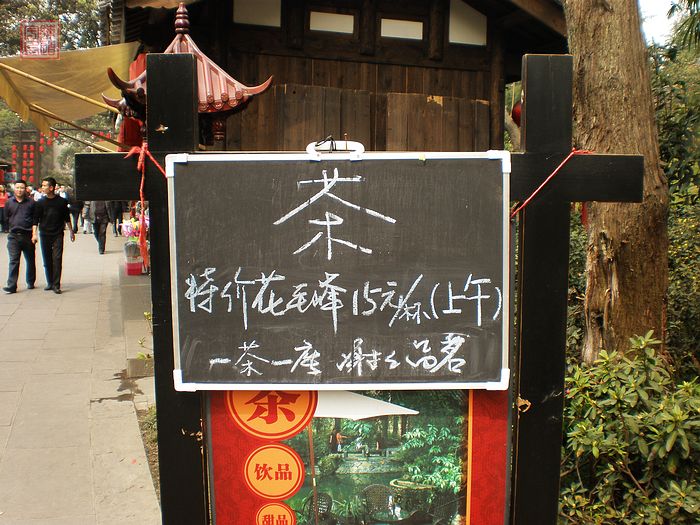 茶
特价花毛峰15元/杯(上午)
一茶一座 谢绝自带茗
茶
饮品
甜品